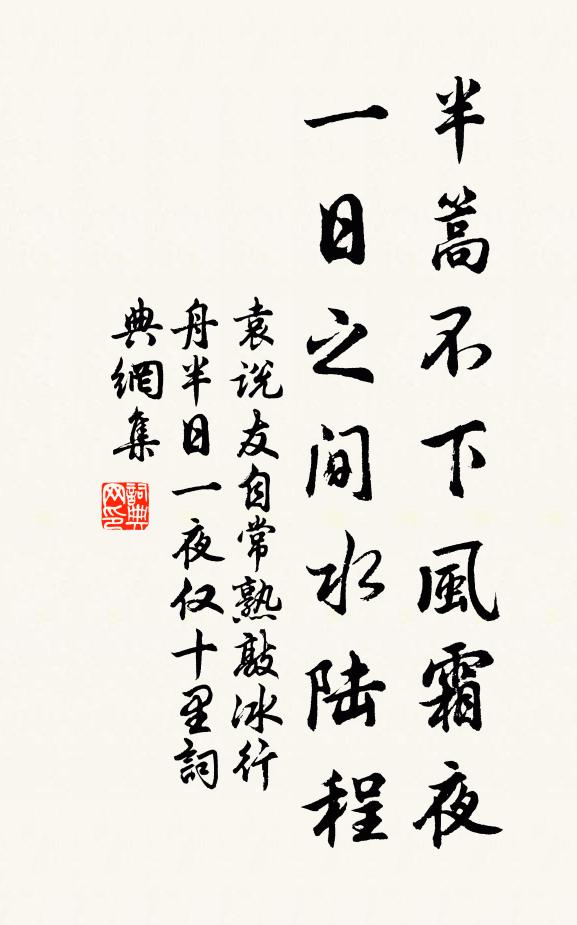 半篙不下風霜夜
一日之间水陆程
袁说友自常熟敲冰行
舟半日一夜仅十里詞
典網集
詞典网印